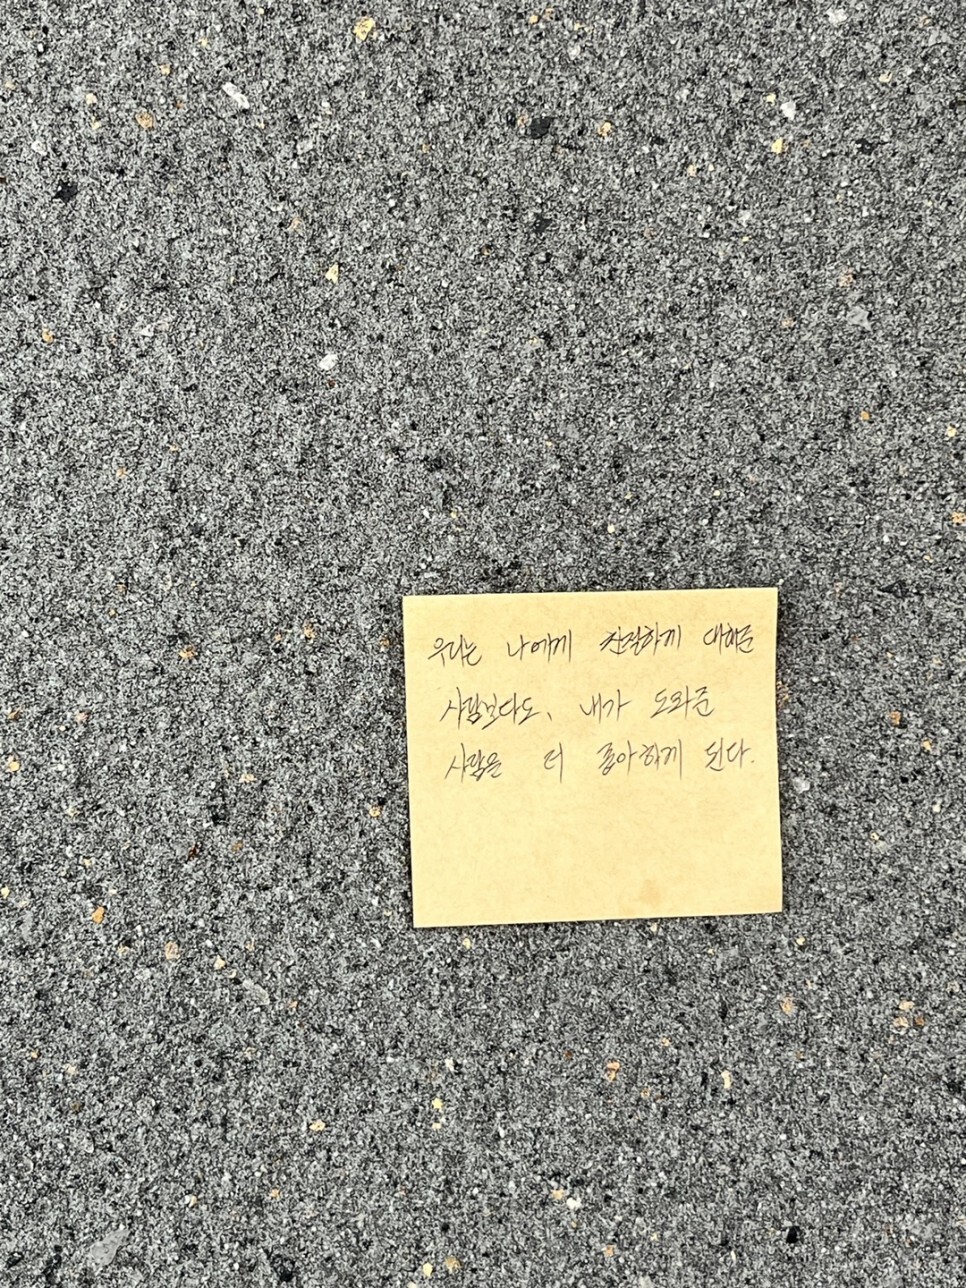 우리는 나에게 친절하게 대해준
사람보다도, 내가 도와준
사람을 더 좋아하게 된다.